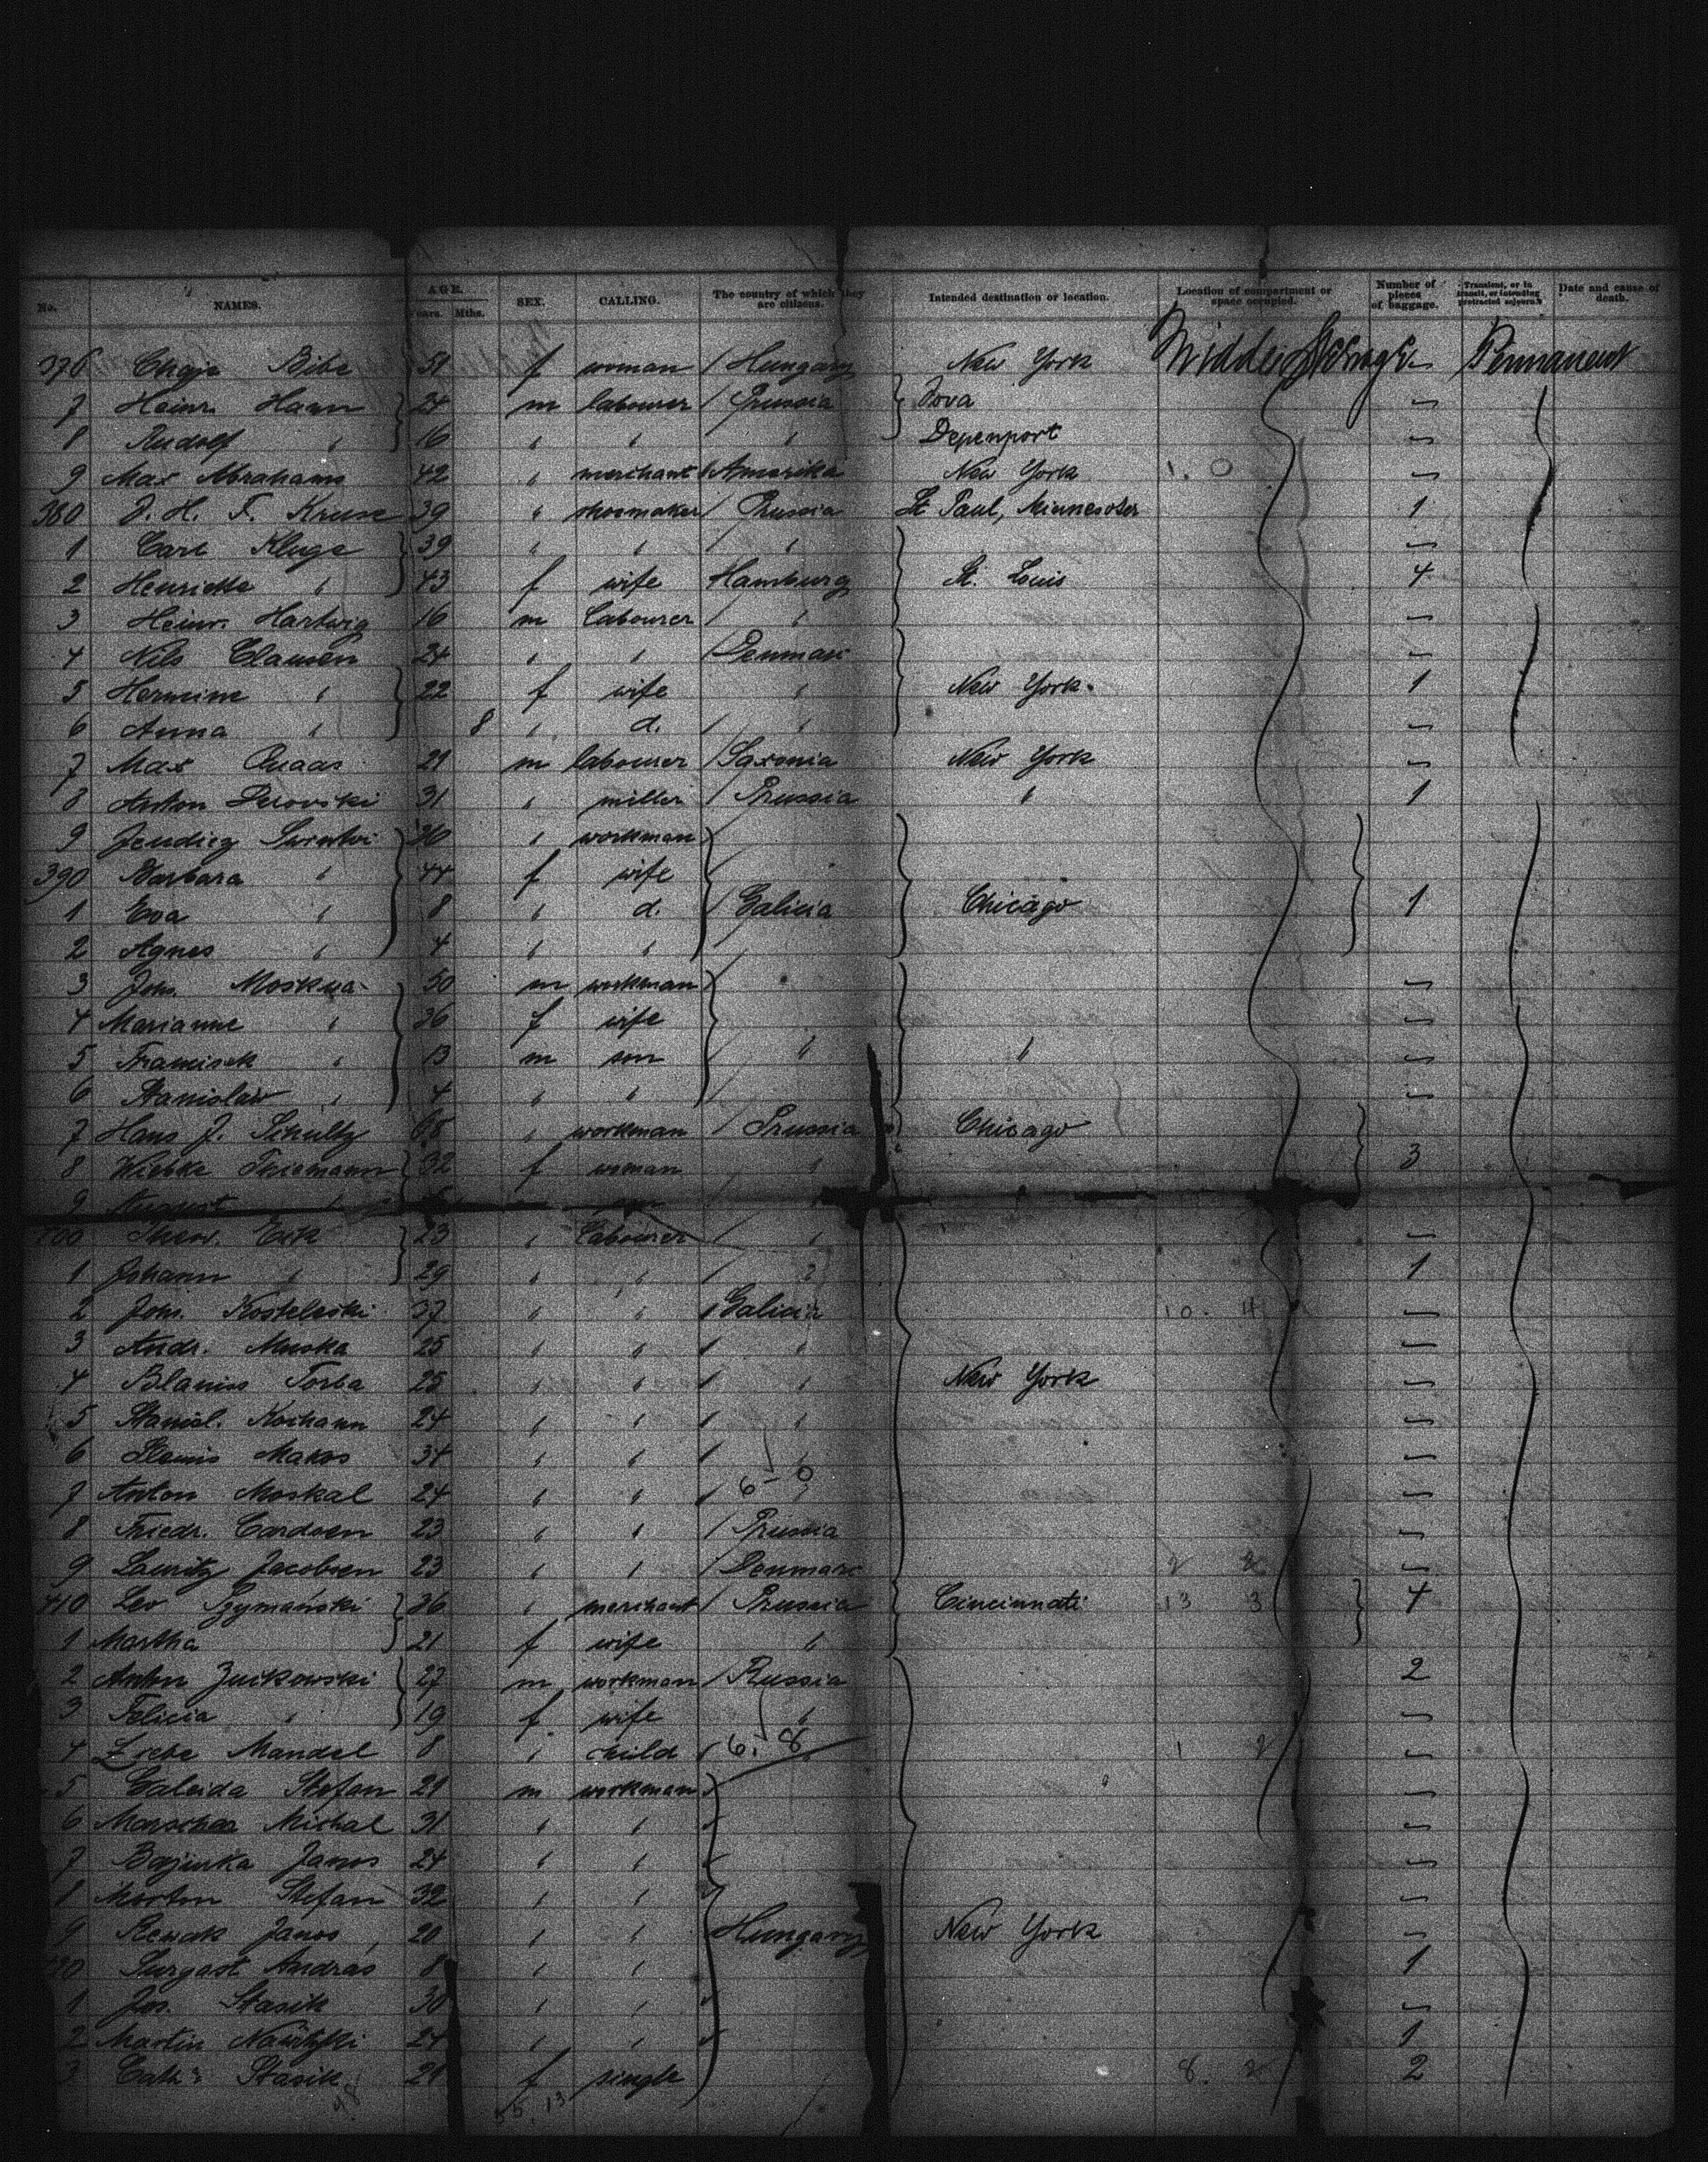 No. NAMES. AGE. Years. Mths. SEX. CALLING. The country of which they are citizens. Intended destination or location. Location of compartment or space occupied. Number of pieces of baggage. Transient, or in transit, or intending protracted sojourn. Date and cause of death.
376 Chaje Bibe 51 f woman / Hungary New York Middle Steerage — Permanent
7 Heinr. Hamn 24 m labourer / Prussia Iova —
8 Rudolf " 16 " " " Depenport —
9 Max Abrahams 42 " merchant Amerika New York 1. 0 —
380 J. H. F. Kruse 39 " shoemaker / Prussia St Paul, Minnesota 1
1 Carl Kluge 39 " " / " —
2 Henriette " 43 f wife Hamburg St. Louis 4
3 Heinr. Hartwig 16 m labourer / " —
4 Nils Clausen 24 " " / Denmark —
5 Hermine " 22 f wife " New York. 1
6 Anna " 8 " d. / " —
7 Max Quaas 21 m labourer / Saxonia New York —
8 Anton 31 " miller / Prussia " 1
9 36 " workman
390 Barbara " 44 f wife /
1 Eva " 8 " d. / Galicia Chicago 1
2 Agnes " 4 " " /
3 Joh. Moskwa 50 m workman —
4 Marianne " 36 f wife —
5 Francisek " 13 m son / " " —
6 Stanislaw " 4 " " / —
7 Hans J. Schultz 68 " workman / Prussia Chicago
8 Wiebke Thiemann 32 f woman " 3
9 August "
400 Eck 23 " labourer / " —
1 Johann " 29 " " / " 1
2 Joh. Kosteleski 37 " " / Galicia 10. 4 —
3 Andr. Muska 25 " " / " —
4 Torba 25 " " / " New York —
5 Stanisl. Kochann 24 " " / " —
6 Makos 34 " " / " —
7 Anton Moskal 24 " " / 6-0 —
8 Friedr. Cardsen 23 " " / Prussia —
9 Lauritz Jacobsen 23 " " / Denmark 2 2 —
410 Leo Szymański 36 " merchant / Prussia Cincinnati 13 3 4
1 Martha 21 f wife "
2 Anton Zuikowski 27 m workman / Russia 2
3 Felicia " 19 f wife " —
4 Liebe Mandel 8 " child / 6. 8 1 2 —
5 Caleida Stefan 21 m workman —
6 Michal 31 " " —
7 Janos 24 " " —
8 Morton Stefan 32 " " —
9 Janos 20 " " Hungary New York —
420 Surgast Andras 8 " " 1
1 Jos. Stasik 30 " " —
2 Martin 24 " " 1
3 Cath. Stasik 21 f single 8. 2 2
48 55. 13